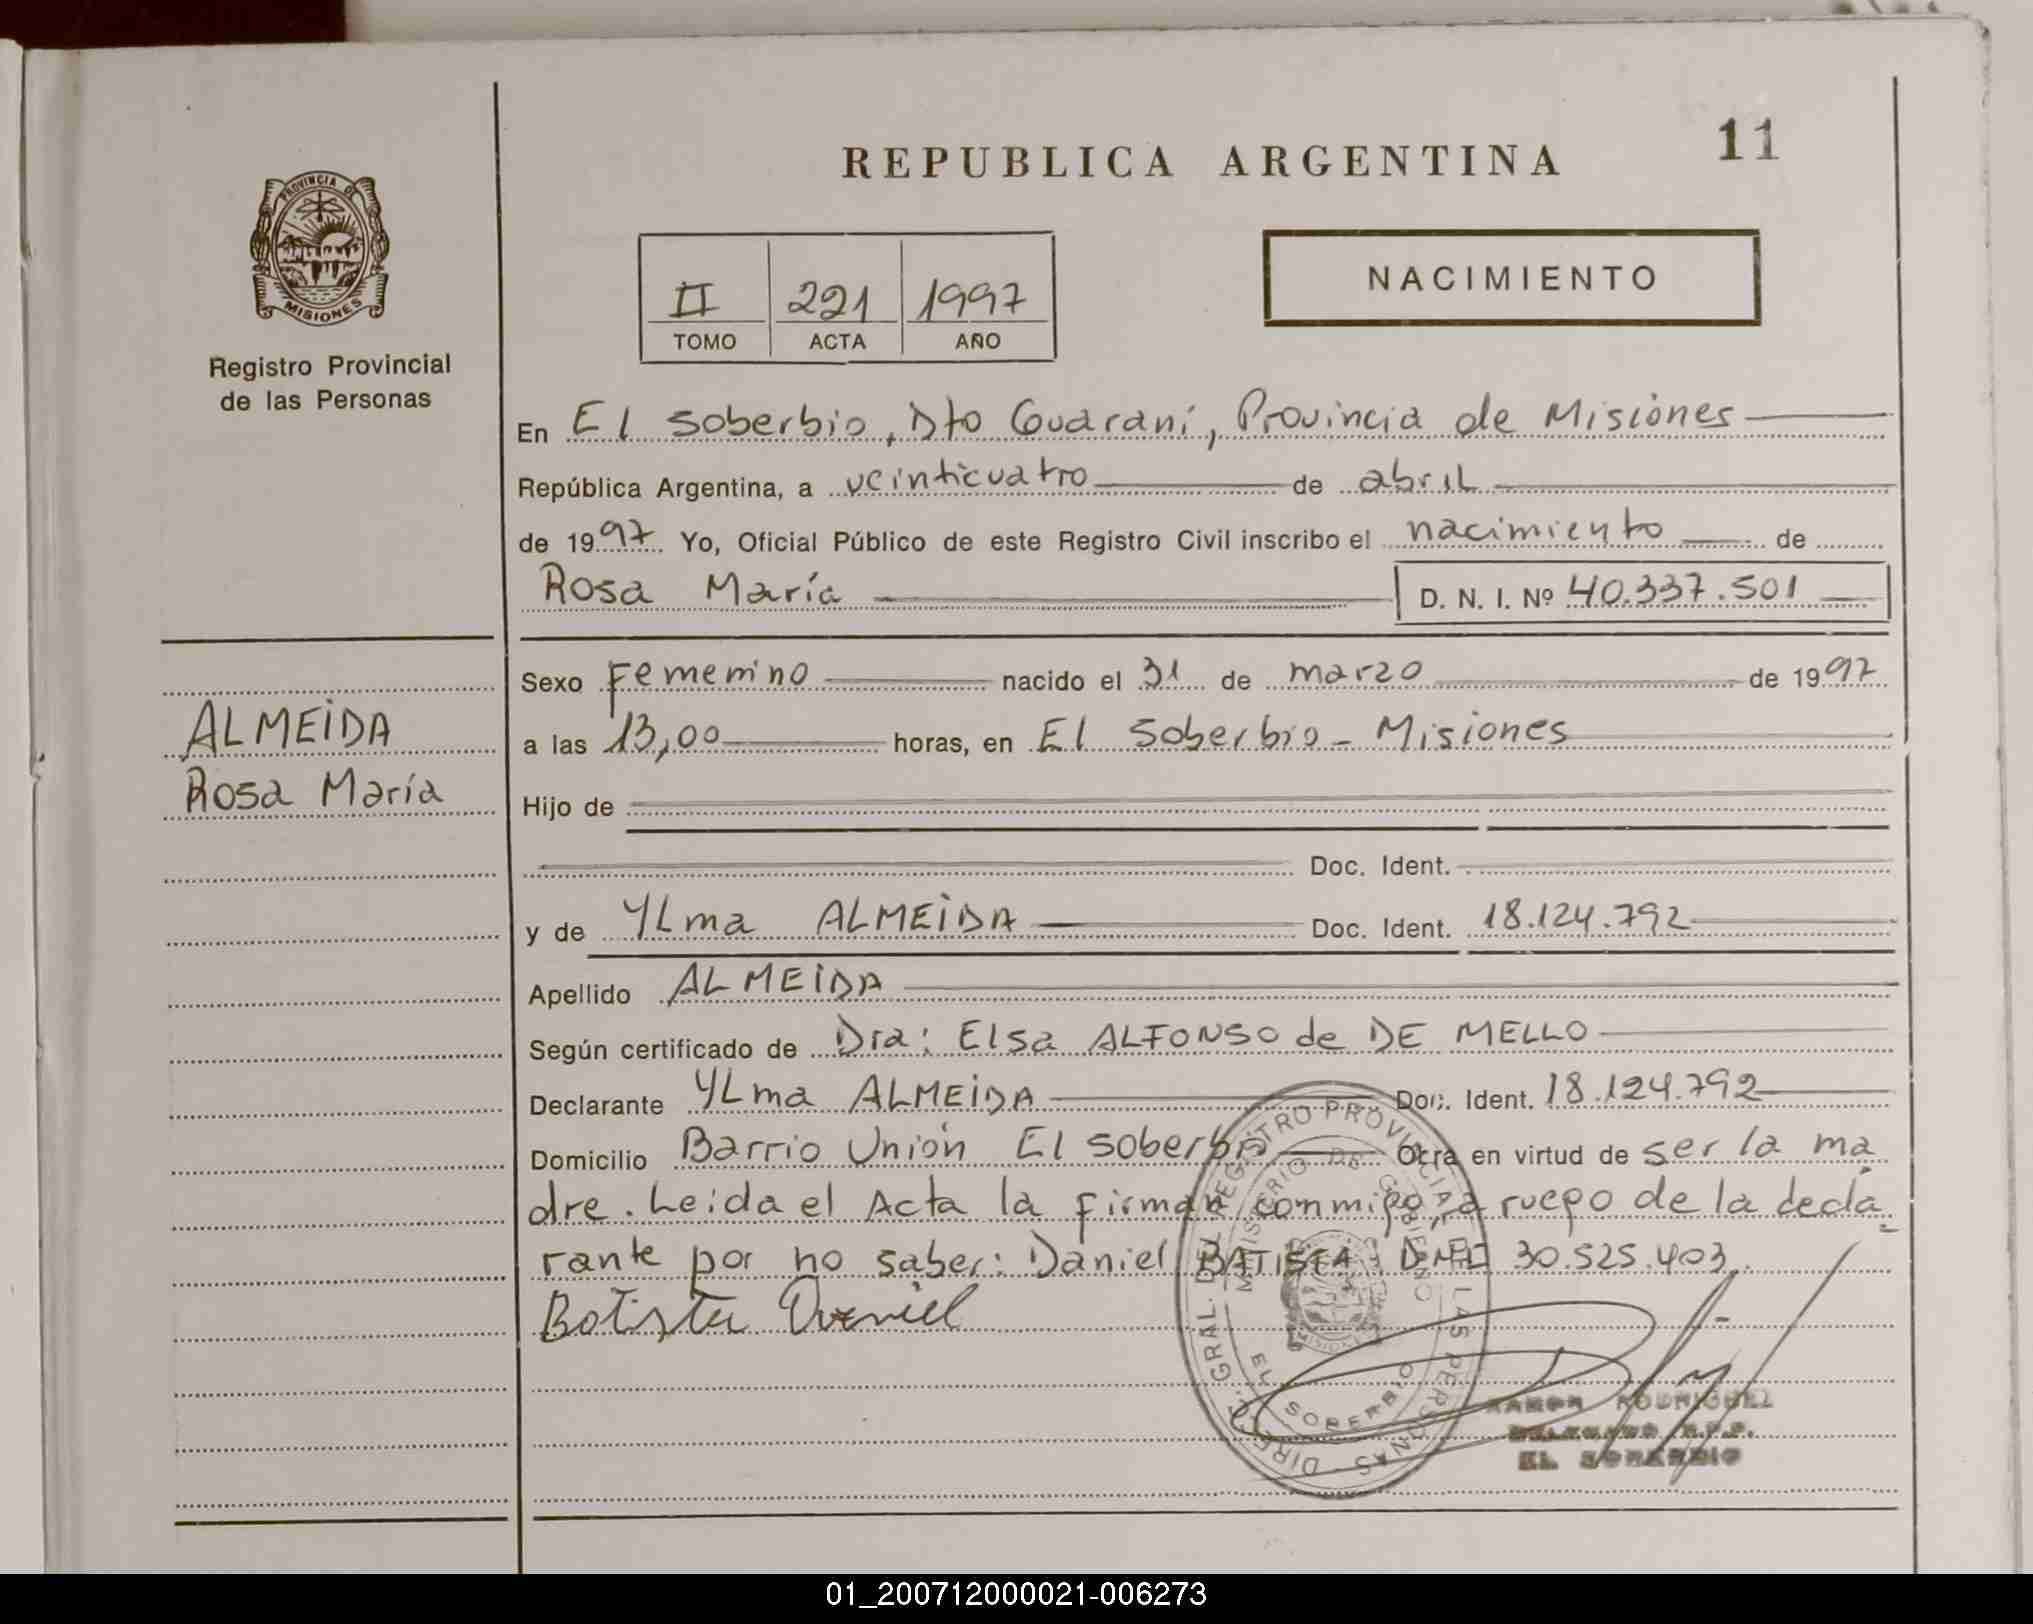 REPUBLICA ARGENTINA
11
PROVINCIA DE
MISIONES
Registro Provincial
de las Personas
II 221 1997
TOMO ACTA AÑO
NACIMIENTO
En El Soberbio, Dto Guaraní, Provincia de Misiones
República Argentina, a veinticuatro de abril
de 1997 Yo, Oficial Público de este Registro Civil inscribo el nacimiento de
Rosa María D. N. I. Nº 40.337.501
Sexo Femenino nacido el 31 de marzo de 1997
ALMEIDA
Rosa María
a las 13,00 horas, en El Soberbio - Misiones
Hijo de
Doc. Ident.
y de YLma ALMEIDA Doc. Ident. 18.124.792
Apellido ALMEIDA
Según certificado de Dra: Elsa ALFONSO de DE MELLO
Declarante YLma ALMEIDA Doc. Ident. 18.124.792
Domicilio Barrio Unión El Soberbio Obra en virtud de ser la ma
dre. Leida el Acta la firman conmigo, a ruego de la decla
rante por no saber: Daniel BATISTA DNI 30.525.403
Batista Daniel
DIREC. GRAL. DEL REGISTRO PROVINCIAL DE LAS PERSONAS
MINISTERIO DE GOBIERNO
EL SOBERBIO
RAMON RODRIGUEZ
DELEGADO R.P.P.
EL SOBERBIO
01_200712000021-006273